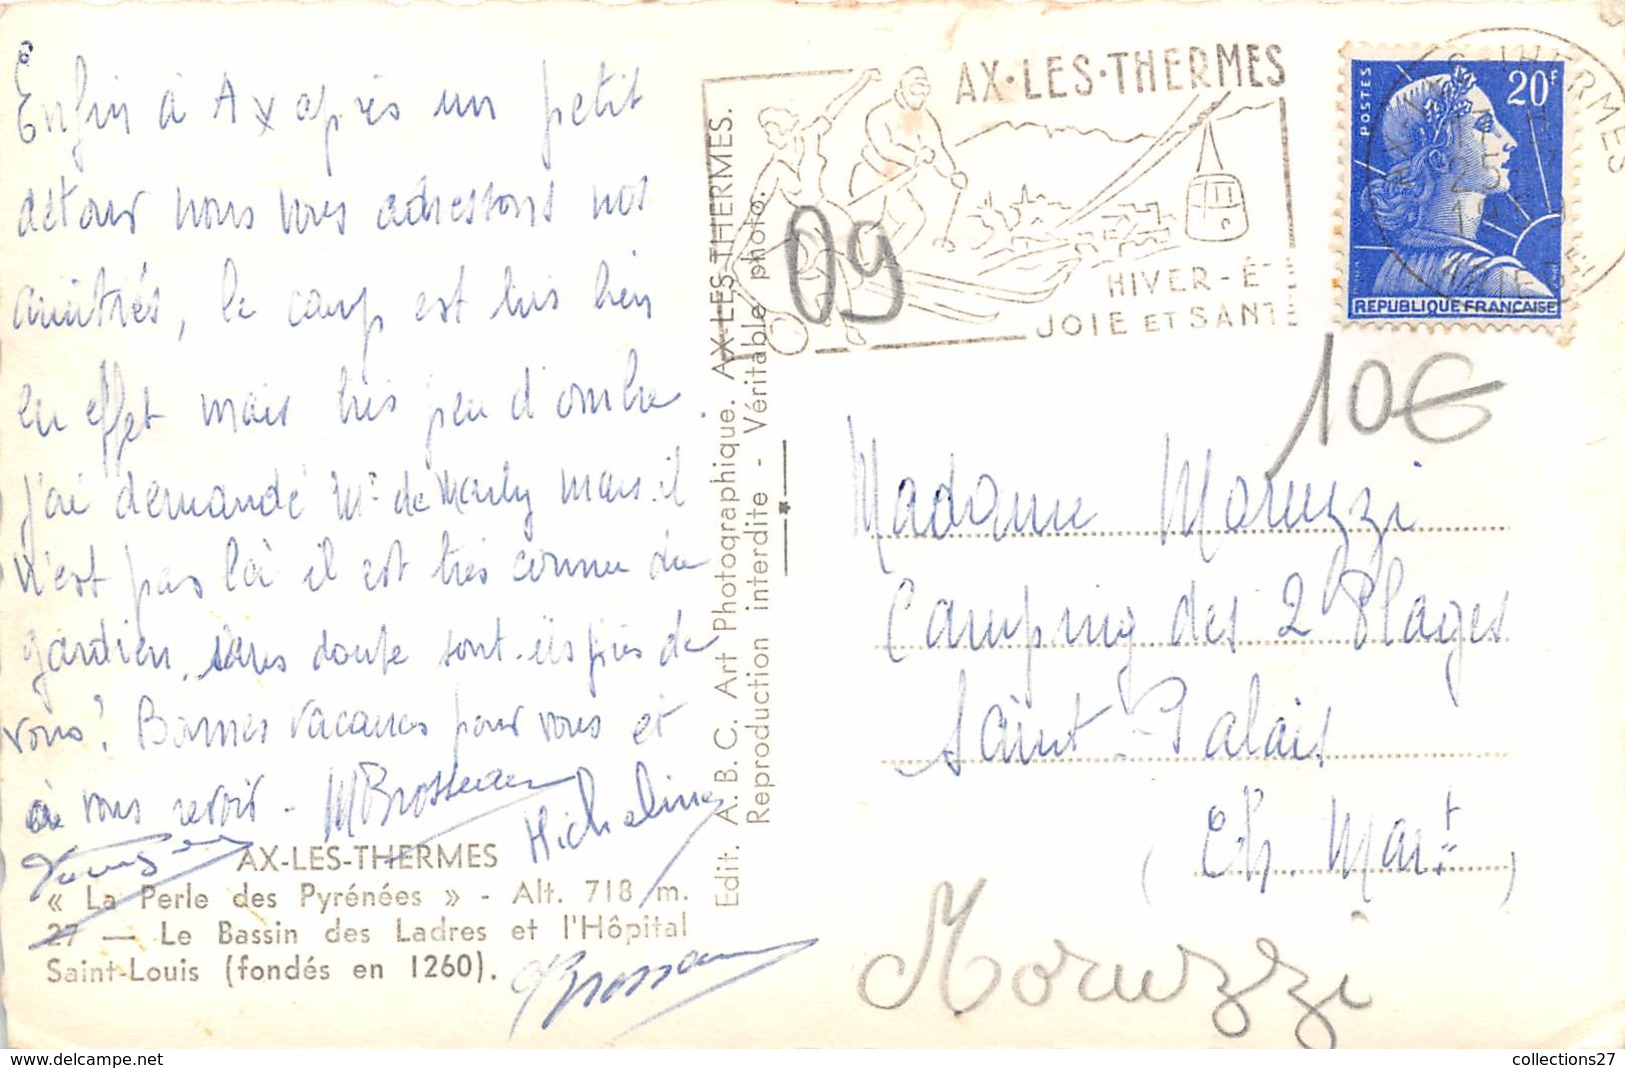 Enfin à Ax après un petit
détour nous vous adressons nos
amitiés, le camp est très bien
en effet mais très peu d'ombre.
j'ai demandé Mr de Marly mais il
n'est pas là il est très connu du
gardien, sans doute sont-ils près de
vous? Bonnes vacances pour vous et
à vous revoir - MBrosseau
Micheline
AX-LES-THERMES
« La Perle des Pyrénées » - Alt. 718 m.
27 — Le Bassin des Ladres et l'Hôpital
Saint-Louis (fondés en 1260).
Brosseau
Edit. A.B.C. Art Photographique. AX-LES-THERMES.
Reproduction interdite - Véritable photo.
AX·LES·THERMES
HIVER-ÉTÉ
JOIE ET SANTÉ
09
POSTES
20F
REPUBLIQUE FRANÇAISE
THERMES
10€
Madame Moruzzi
Camping des 2 Plages
Saint-Palais
(Ch. Mart)
Moruzzi
collections27